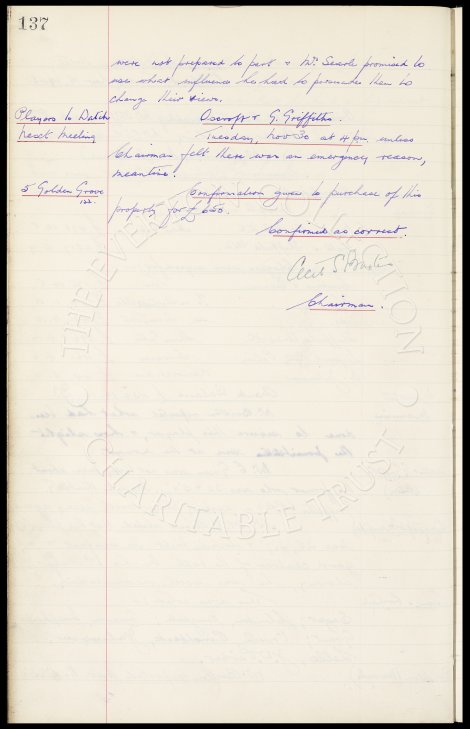 137
were not prepared to part & Mr. Searle promised to
use what influence he had to persuade them to
change their views.
Players to Watch Oscroft & G. Griffiths.
Next Meeting Tuesday, Nov 30 at 4 pm unless
Chairman felt there was an emergency reason,
meantime.
5 Golden Grove Confirmation given to purchase of this
122. property for £650.
Confirmed as correct.
Cecil S Baxter
Chairman.
THE EVERTON COLLECTION
CHARITABLE TRUST